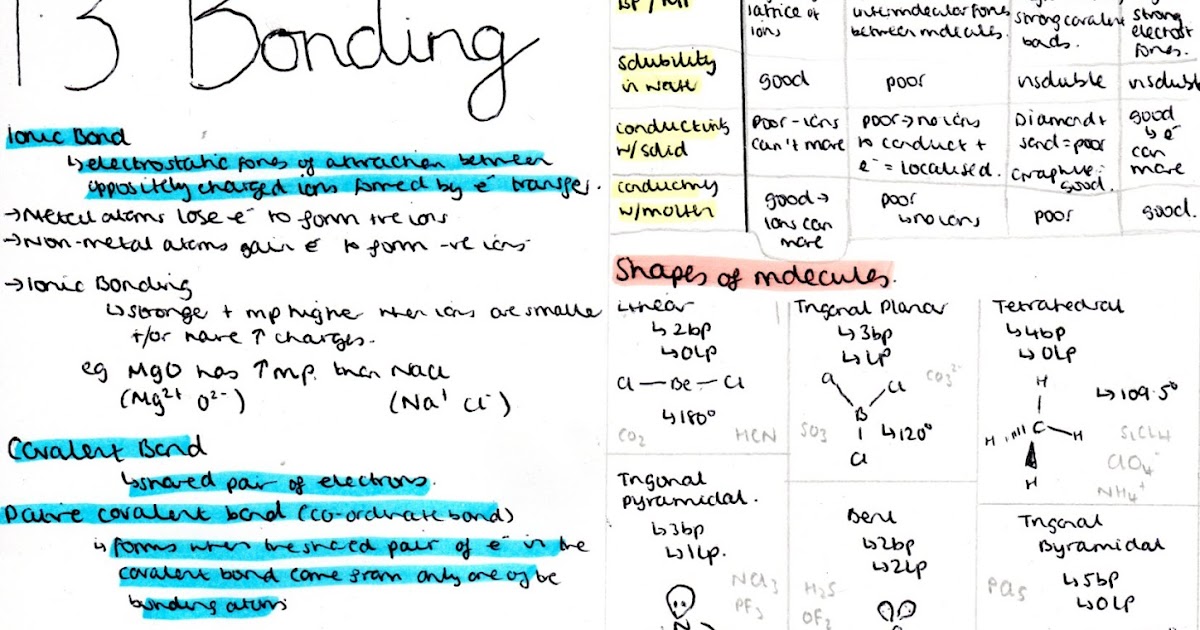 1.3 Bonding
Ionic Bond
↳ electrostatic forces of attraction between
oppositely charged ions formed by e⁻ transfer.
→ Metal atoms lose e⁻ to form +ve ions
→ Non-metal atoms gain e⁻ to form -ve ions
→ Ionic Bonding
↳ stronger + mp higher when ions are smaller
+/or have ↑ charges.
eg MgO has ↑ mp. than NaCl
(Mg²⁺ O²⁻) (Na⁺ Cl⁻)
Covalent Bond
↳ shared pair of electrons.
Dative covalent bond (co-ordinate bond)
↳ forms when the shared pair of e⁻ in the
covalent bond come from only one of the
bonding atoms
BP/MP
lattice of
ions
intermolecular forces
between molecules.
strong covalent
bonds.
strong
electrost
forces.
solubility
in water
good
poor
insoluble
insoluble
conductivity
w/solid
poor - ions
can't move
poor → no ions
to conduct +
e⁻ = localised.
Diamond +
sand = poor
Graphite =
good.
good
↳ e⁻
can
move
conductivity
w/molten
good →
ions can
move
poor
↳ no ions
poor
good.
Shapes of molecules.
Linear
↳ 2bp
↳ 0LP
Cl — Be — Cl
↳ 180°
CO₂ HCN
Trigonal Planar
↳ 3bp
↳ LP
Cl Cl CO₃²⁻
B
SO₃ ↳ 120°
Cl
Tetrahedral
↳ 4bp
↳ 0LP
H
↳ 109.5°
H C H
H
SiCl₄
ClO₄⁻
NH₄⁺
Trigonal
pyramidal.
↳ 3bp
↳ 1LP.
NCl₃
PF₃
N
Bent
↳ 2bp
↳ 2LP
H₂S
OF₂
Trigonal
Bypramidal
↳ 5bp
↳ 0LP
PCl₅